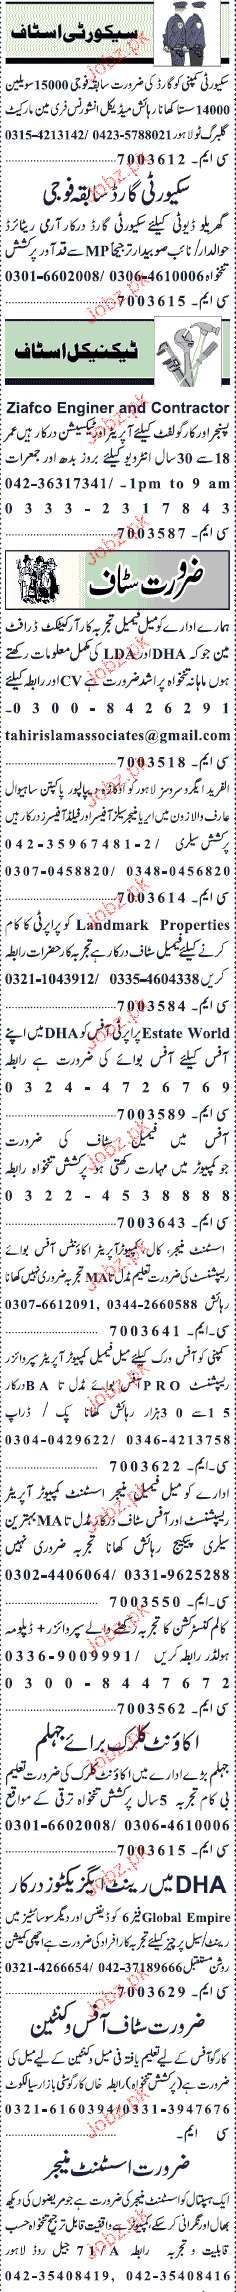 سیکورٹی اسٹاف
سیکورٹی کمپنی کو گارڈ کی ضرورت سابقہ فوجی 15000 سویلین
14000 سستا کھانا رہائش میڈیکل انشورنس فری مین مارکیٹ
گلبرگ ٹو لاہور 0423-5788021 /0315-4213142
سی ایم۔ 7003612
سیکورٹی گارڈ سابقہ فوجی
گھریلو ڈیوٹی کیلئے سیکورٹی گارڈ درکار آرمی ریٹائرڈ
حوالدار/ نائب صوبیدار ترجیحا MP سے قد آور پرکشش
تنخواہ 0306-4610006 /0301-6602008
سی ایم۔ 7003615
ٹیکنیکل اسٹاف
Ziafco Enginer and Contractor
پسنجر اور کارگو لفٹ کیلئے آپریٹر اور ٹیکنیشن درکار ہیں عمر
18 سے 30 سال انٹرویو کیلئے بروز بدھ اور جمعرات
042-36317341/ ۔1pm to 9 am
0333-2317843
سی ایم۔ 7003587
ضرورت سٹاف
ہمارے ادارے کو میل فیمیل تجربہ کار آرکیٹکٹ ڈرافٹ
مین جو کہ DHA اور LDA کی مکمل معلومات رکھتے
ہوں ماہانہ تنخواہ پر اشد ضرورت ہے CV اور رابطہ کیلئے
0300-8426291۔
tahirislamassociates@gmail.com
سی ایم۔ 7003518
الفرید ایگرو سروسز لاہور کو اوکاڑہ دیپالپور پاکپتن ساہیوال
عارف والا زون میں ایریا منیجر سیلز آفیسر اور فیلڈ آفیسرز درکار ہیں
پرکشش سیلری /042-35967481-2
0348-0456820 /0307-0458820
سی ایم۔ 7003614
Landmark Properties کو پراپرٹی کا کام
کرنے کیلئے فیمیل سٹاف درکار ہے تجربہ کار حضرات رابطہ
کریں 0335-4604338 /0321-1043912
سی ایم۔ 7003584
Estate World پراپرٹی آفس کو DHA میں اپنے
آفس کیلئے آفس بوائے کی ضرورت ہے رابطہ
0324-4726769
سی ایم۔ 7003589
آفس میں فیمیل سٹاف کی ضرورت
جو کمپیوٹر میں مہارت رکھتی ہو پرکشش تنخواہ رابطہ
0322-4538888
سی ایم۔ 7003643
اسسٹنٹ منیجر، کال، کمپیوٹر آپریٹر اکاؤنٹس آفس بوائے
ریسپشنسٹ کی ضرورت تعلیم مڈل تا MA تجربہ ضروری نہیں کھانا
رہائش 0344-2660588 ,0307-6612091
سی۔ ایم۔ 7003641
کمپنی کو آفس ورک کیلئے میل فیمیل کمپیوٹر آپریٹر سپروائزر
ریسپشنسٹ PRO آفس بوائے مڈل تا BA درکار
15 سے 30 ہزار رہائش کھانا پک / ڈراپ
0346-4213758 /0304-0429622
سی۔ ایم۔ 7003622
ادارے کو میل فیمیل منیجر اسسٹنٹ کمپیوٹر آپریٹر
ریسپشنسٹ اور آفس سٹاف درکار مڈل تا MA بہترین
سیلری پیکیج رہائش کھانا تجربہ ضروری نہیں
0331-9625288 /0302-4406064
سی۔ ایم۔ 7003550
کالم کنسٹرکشن کا تجربہ رکھنے والے سپروائزر + ڈپلومہ
ہولڈر رابطہ کریں /0336-9009991
0300-8447672
سی ایم۔ 7003562
اکاؤنٹ کلرک برائے جہلم
جہلم بڑے ادارے میں اکاؤنٹ کلرک کی ضرورت تعلیم
بی کام تجربہ 5 سال پرکشش تنخواہ ترقی کے مواقع
0306-4610006 /0301-6602008
سی ایم۔ 7003615
DHA میں رینٹ ایگزیکٹوز درکار
Global Empire فیز 6 کو ڈیفنس اور دیگر سوسائٹیز میں
رینٹ/سیل پرچیز کیلئے تجربہ کار افراد کی ضرورت ہے اچھی کمیشن
روشن مستقبل 042-37189666 /0321-4266654
سی ایم۔ 7003629
ضرورت سٹاف آفس و کنٹین
کارگو آفس کے لیے تعلیم یافتہ فی میل و کنٹین کے لیے میل کی
ضرورت ہے (پرکشش تنخواہ) رابطہ خاں کارگو بازار سیالکوٹ
0321-6160394/0331-3947676
سی ایم۔
ضرورت اسسٹنٹ منیجر
ایک ہسپتال کو اسسٹنٹ منیجر کی ضرورت ہے جو مریضوں کی دیکھ
بھال اور نگرانی کر سکے کمپیوٹر سے واقفیت قابل ترجیح تنخواہ حسب
قابلیت و تجربہ رابطہ 71/A جیل روڈ لاہور
042-35408419, 042-35408416